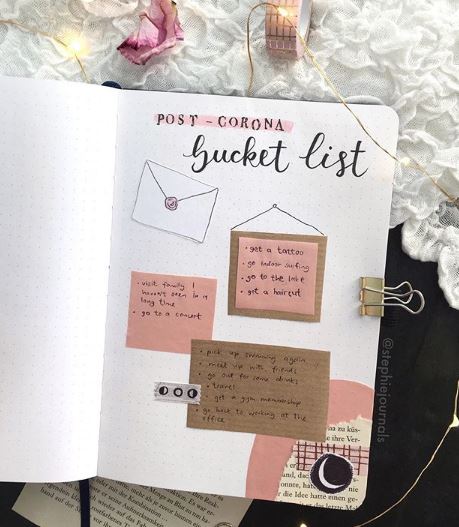 POST-CORONA
bucket list
• get a tattoo
• go indoor surfing
• go to the lake
• get a haircut
• visit family I
haven't seen in a
long time
• go to a concert
• pick up swimming again
• meet up with friends
• go out for some drinks
• travel
• get a gym membership
• go back to working at the
office
@stephiejournals